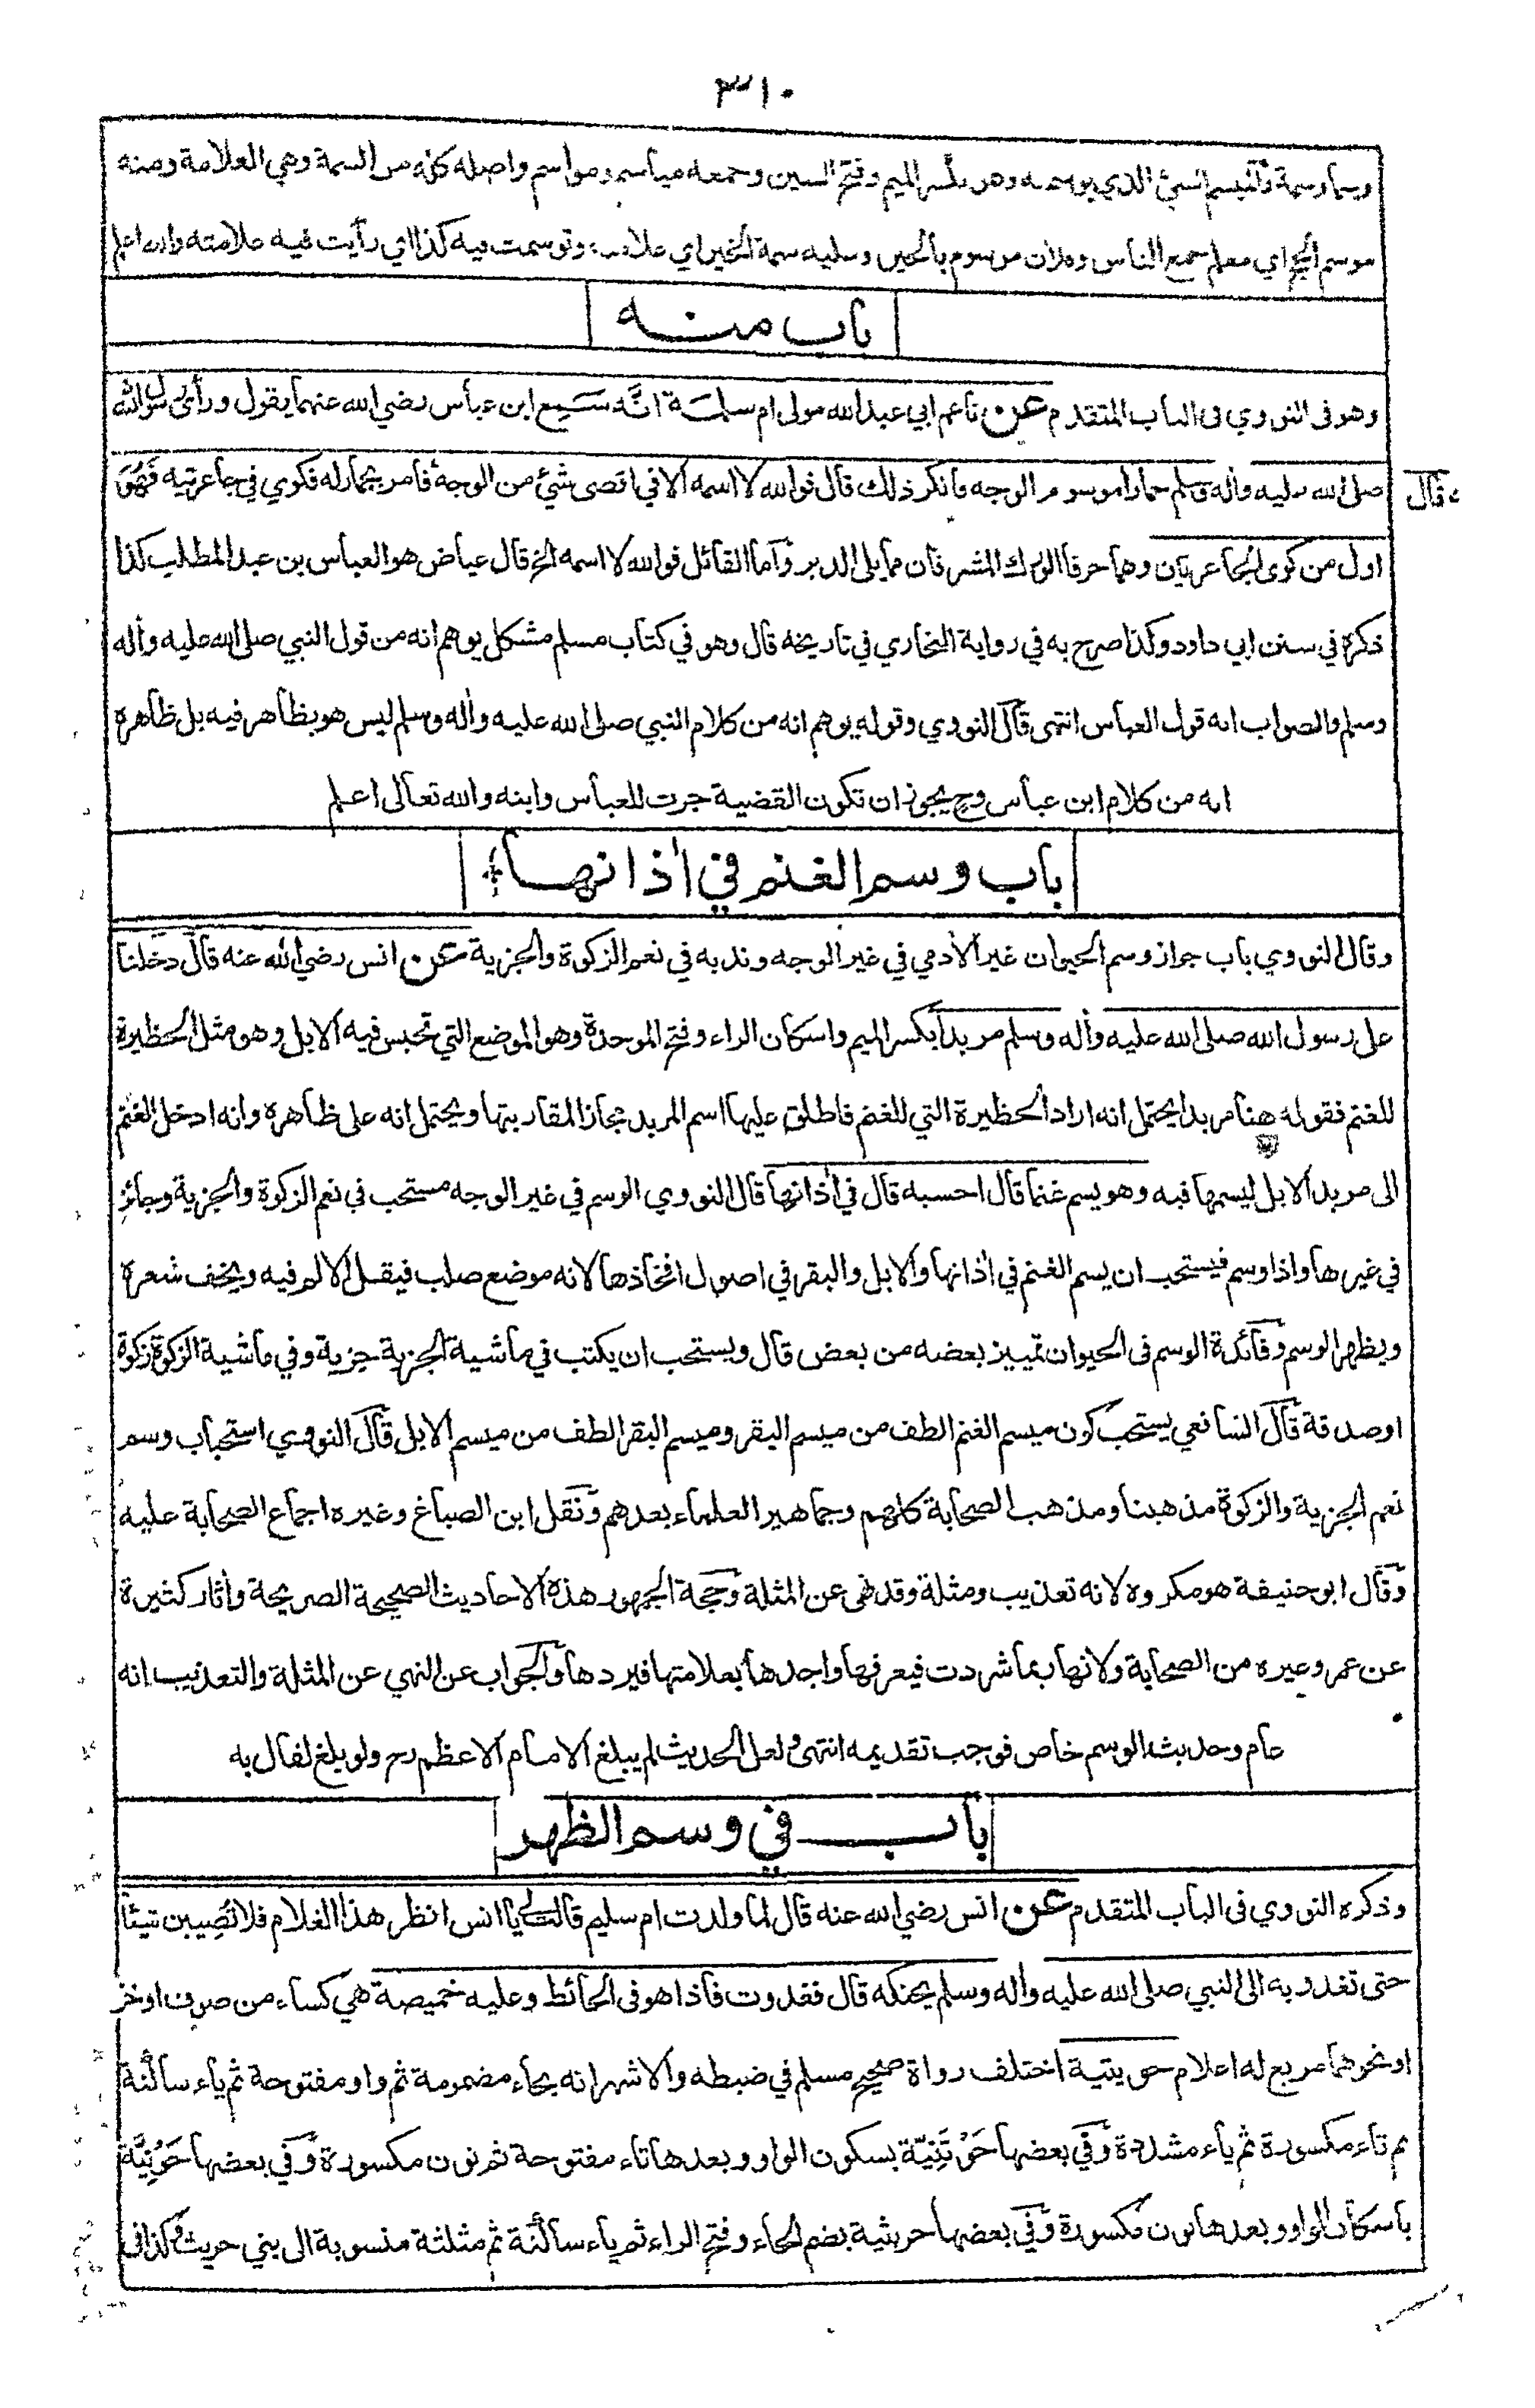 ٣١٠
وسما وسمة والميسم الشئ الذي يوسم به وهو بكسر الميم وفتح السين وجمعه مياسم ومواسم واصله كله من السمة وهي العلامة ومنه
موسم الحج اي معلم جمع الناس وفلان موسوم بالخير وعليه سمة الخير اي علامته وتوسمت فيه كذا اي رأيت فيه علامته والله اعلم
باب منه
وهو فى النووي فى الباب المتقدم عن ناعم ابي عبد الله مولى ام سلمة انَّه سمع ابن عباس رضي الله عنهما يقول ورأى رسول الله
صلى الله عليه وأله وسلم حمارا موسوم الوجه فانكر ذلك قال فوالله لا اسمه الا في اقصى شئ من الوجه فامر بحمار له فكوي في جاعرتيه فَهُوَ
قال
اول من كوى الجاعرتين وهما حرفا الورك المشرفان مما يلى الدبر وأما القائل فوالله لا اسمه الخ قال عياض هو العباس بن عبد المطلب كذا
ذكره في سنن ابي داود وكذا صرح به في رواية البخاري في تاريخه قال وهو في كتاب مسلم مشكل يوهم انه من قول النبي صلى الله عليه وأله
وسلم والصواب انه قول العباس انتهى قال النووي وقوله يوهم انه من كلام النبي صلى الله عليه وأله وسلم ليس هو بظاهر فيه بل ظاهره
انه من كلام ابن عباس وح يجوز ان تكون القضية جرت للعباس وابنه والله تعالى اعلم
باب وسم الغنم في أذانها
وقال النووي باب جواز وسم الحيوان غير الأدمي في غير الوجه وندبه في نعم الزكوة والجزية عن انس رضي الله عنه قال دخلنا
على رسول الله صلى الله عليه وأله وسلم مربدا بكسر الميم واسكان الراء وفتح الموحدة وهو الموضع التي تحبس فيه الابل وهو مثل الحظيرة
للغنم فقوله هنا مربدا يحتمل انه اراد الحظيرة التي للغنم فاطلق عليها اسم المربد مجازا لمقاربتها ويحتمل انه على ظاهره وانه ادخل الغنم
الى مربد الابل ليسمها فيه وهو يسم غنما قال احسبه قال في أذانها قال النووي الوسم في غير الوجه مستحب في نعم الزكوة والجزية وجائز
في غيرها واذا وسم فيستحب ان يسم الغنم في أذانها والابل والبقر في اصول افخاذها لانه موضع صلب فيقل الالم فيه ويخف شعره
ويظهر الوسم وفائدة الوسم فى الحيوان تمييز بعضه من بعض قال ويستحب ان يكتب في ماشية الجزية جزية وفي ماشية الزكوة زكوة
او صدقة قال الشافعي يستحب كون ميسم الغنم الطف من ميسم البقر وميسم البقر الطف من ميسم الابل قال النووي استحباب وسم
نعم الجزية والزكوة مذهبنا ومذهب الصحابة كلهم وجماهير العلماء بعدهم ونقل ابن الصباغ وغيره اجماع الصحابة عليه
وقال ابو حنيفة هو مكروه لانه تعذيب ومثلة وقد نهى عن المثلة وحجة الجمهور هذه الاحاديث الصحيحة الصريحة وأثار كثيرة
عن عمر وغيره من الصحابة ولانها بما شردت فيعرفها واجدها بعلامتها فيردها والجواب عن النهي عن المثلة والتعذيب انه
عام وحديث الوسم خاص فوجب تقديمه انتهى ولعل الحديث لم يبلغ الامام الاعظم رح ولو بلغ لقال به
باب في وسم الظهر
وذكره النووي فى الباب المتقدم عن انس رضي الله عنه قال لما ولدت ام سليم قالت لي يا انس انظر هذا الغلام فلا تصيبن شيئا
حتى تغدو به الى النبي صلى الله عليه وأله وسلم يحنكه قال فغدوت فاذا هو فى الحائط وعليه خميصة هي كساء من صوف او خز
او نحوهما مربع له اعلام حويتية اختلف رواة صحيح مسلم في ضبطه والاشهر انه بحاء مضمومة ثم واو مفتوحة ثم ياء ساكنة
ثم تاء مكسورة ثم ياء مشددة وفي بعضها حَوْتَنِيّة بسكون الواو وبعدها تاء مفتوحة ثم نون مكسورة وفي بعضها حَوْنِيَّة
باسكان الواو وبعدها نون مكسورة وفي بعضها حريثية بضم الحاء وفتح الراء ثم ياء ساكنة ثم مثلثة منسوبة الى بني حريث وكذا فى